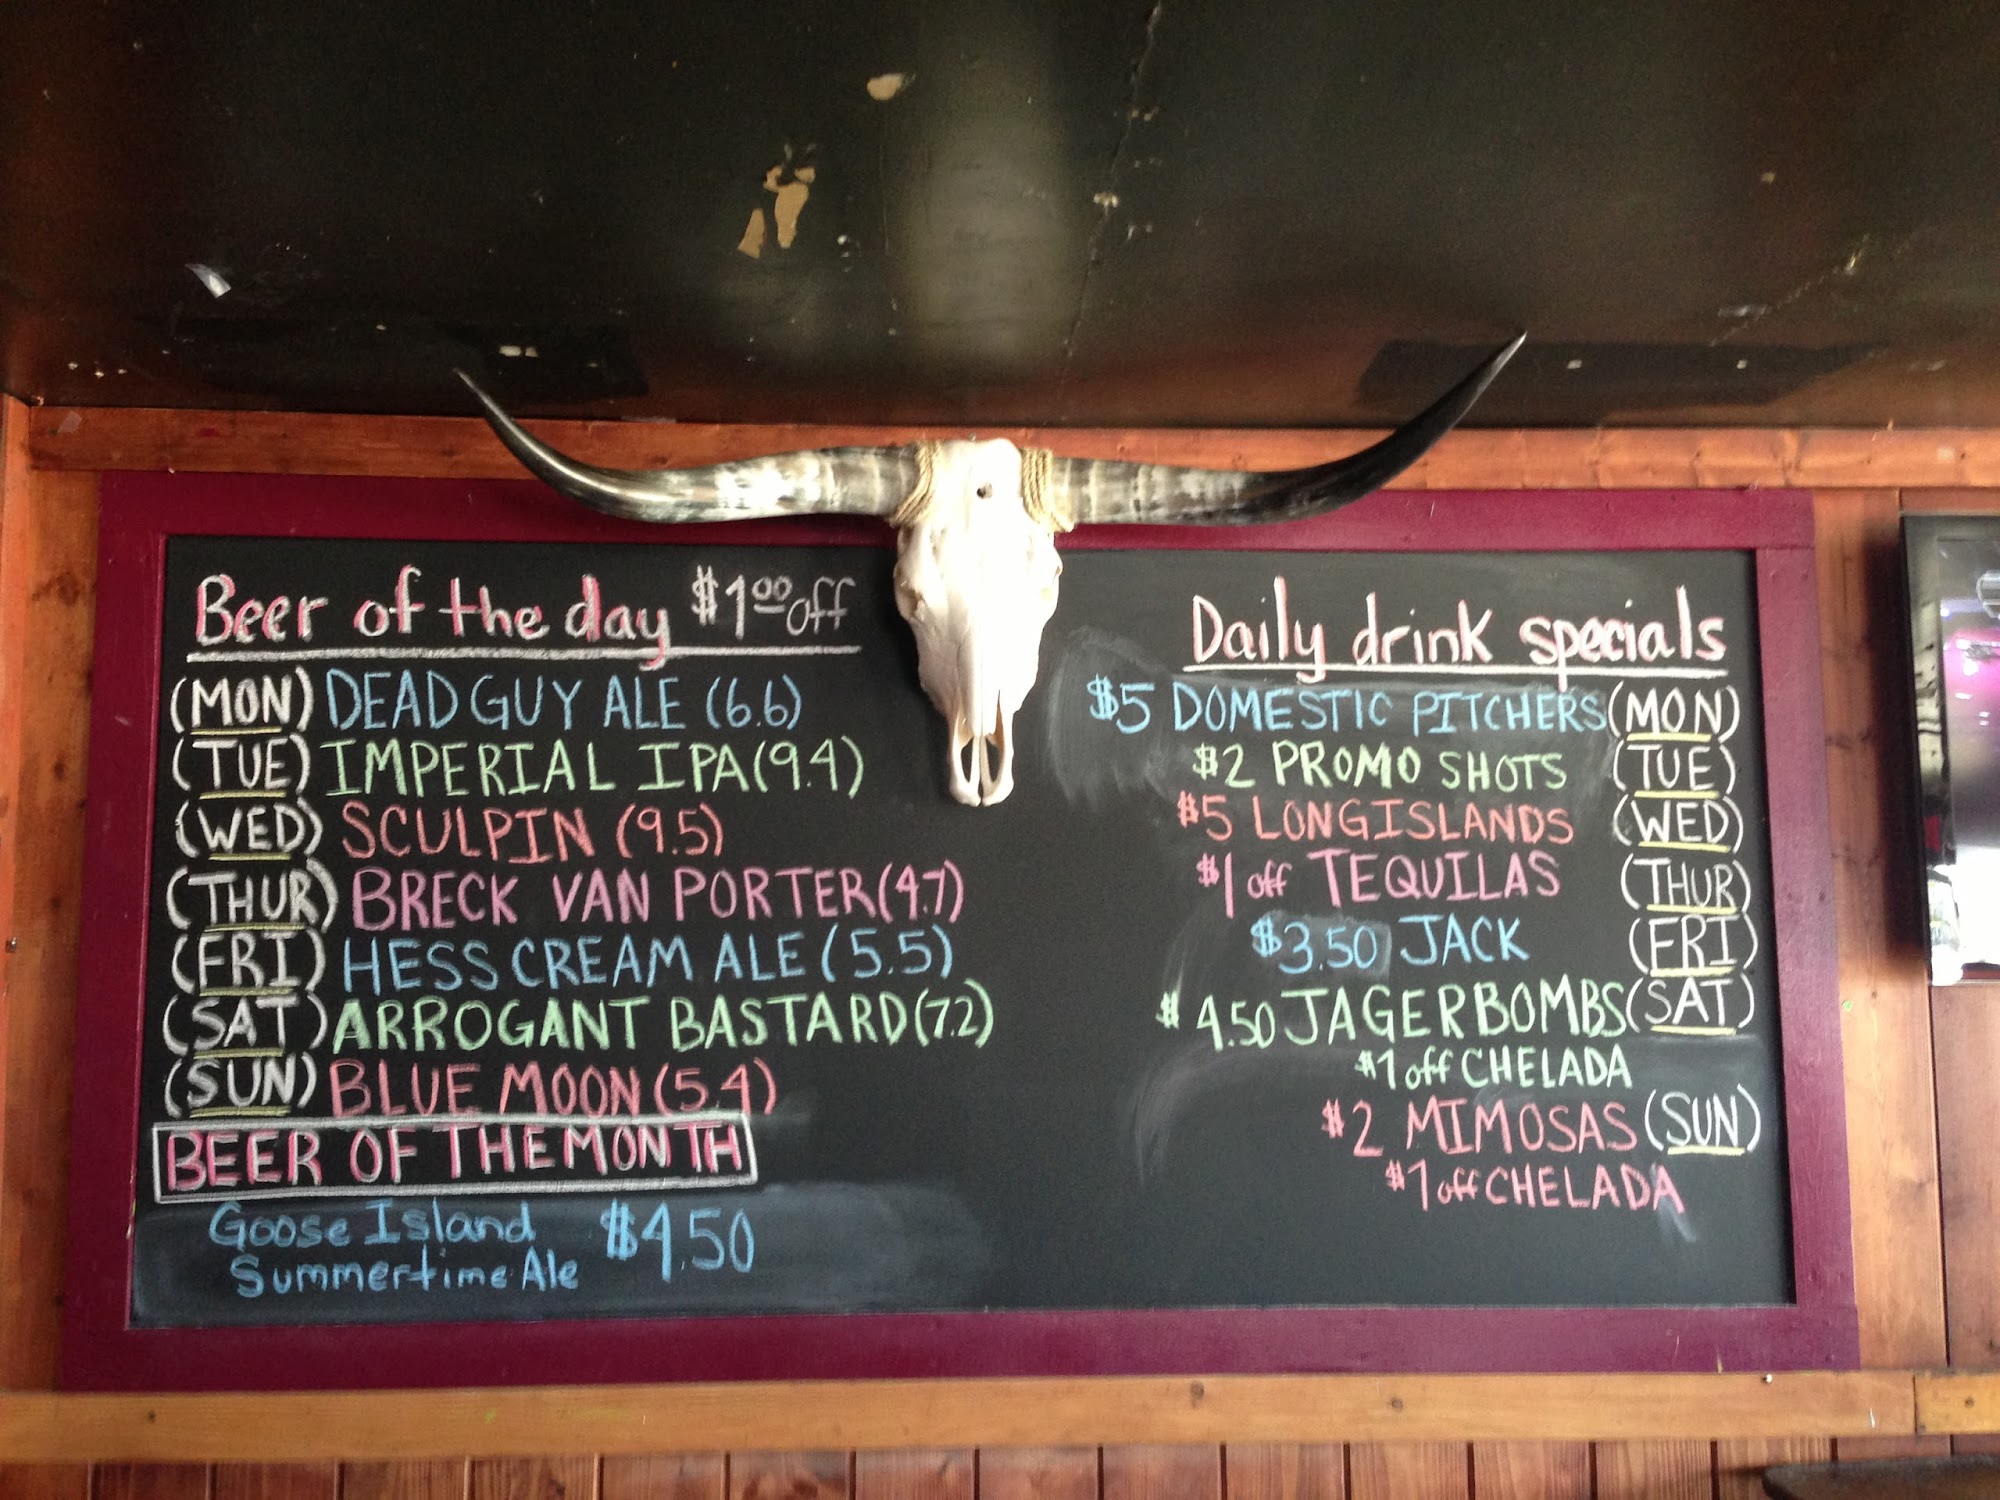 Beer of the day $1.00 off
(MON) DEAD GUY ALE (6.6)
(TUE) IMPERIAL IPA (9.4)
(WED) SCULPIN (9.5)
(THUR) BRECK VAN PORTER (4.7)
(FRI) HESS CREAM ALE (5.5)
(SAT) ARROGANT BASTARD (7.2)
(SUN) BLUE MOON (5.4)
BEER OF THE MONTH
Goose Island $4.50
Summertime Ale
Daily drink specials
$5 DOMESTIC PITCHERS (MON)
$2 PROMO SHOTS (TUE)
$5 LONGISLANDS (WED)
$1 off TEQUILAS (THUR)
$3.50 JACK (FRI)
$4.50 JAGERBOMBS (SAT)
$1 off CHELADA
$2 MIMOSAS (SUN)
$1 off CHELADA